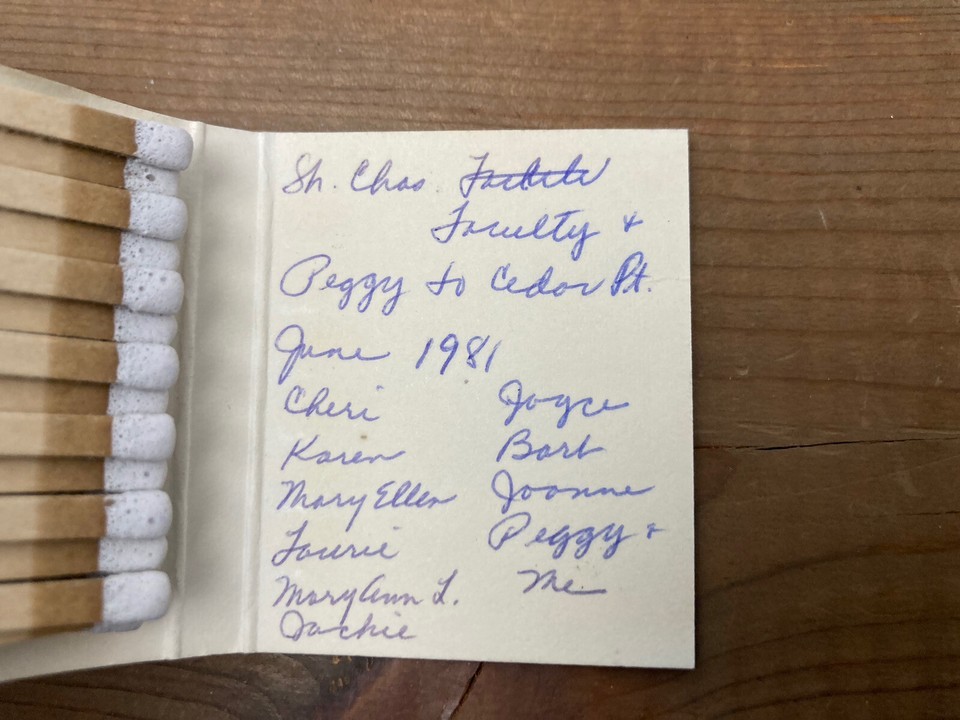 Sh. Chas.
Faculty &
Peggy to Cedar Pt.
June 1981
Cheri Joyce
Karen Barb
Mary Ellen Joanne
Laurie Peggy &
Mary Ann L. Me
Jackie